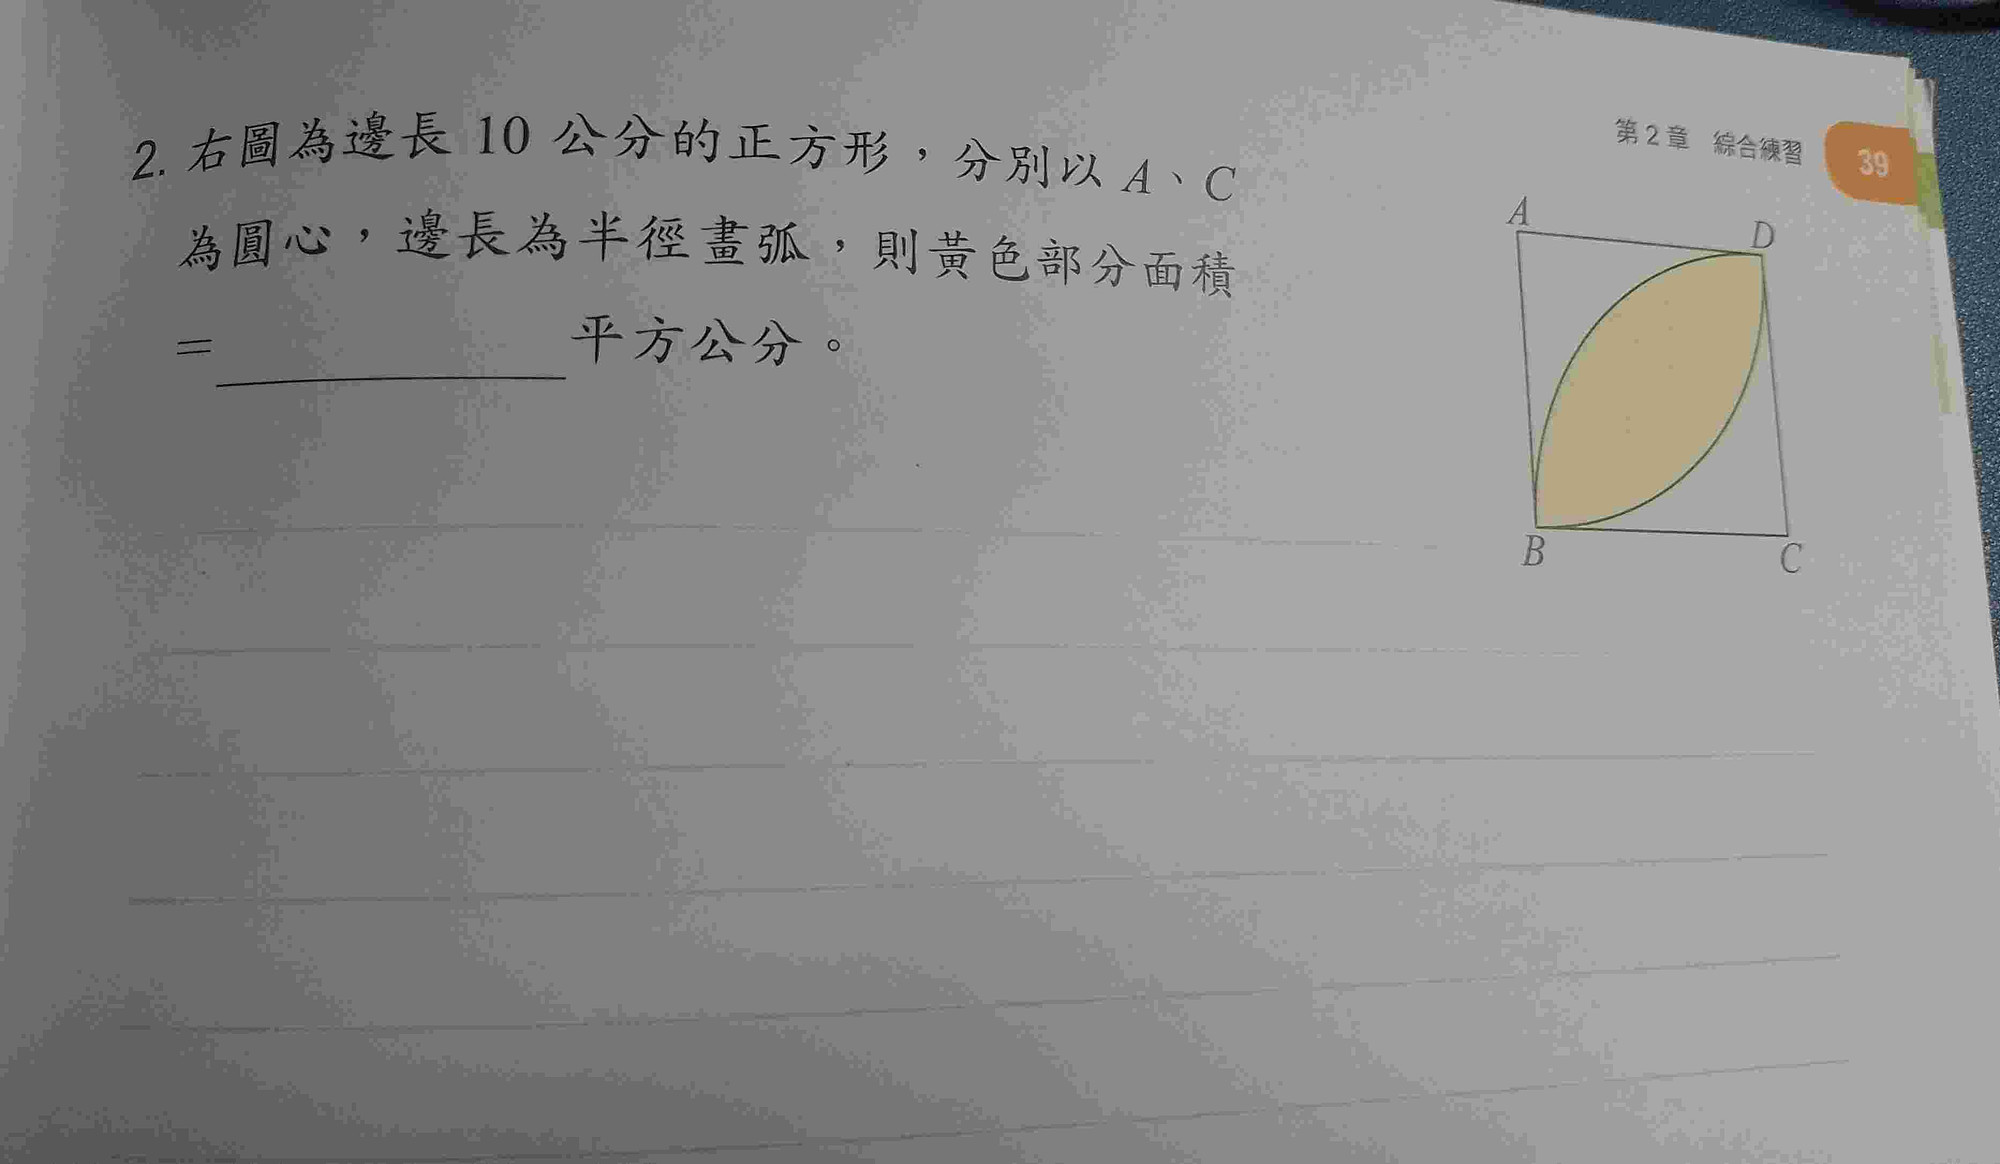 第2章 綜合練習 39
2. 右圖為邊長 10 公分的正方形，分別以 A、C
為圓心，邊長為半徑畫弧，則黃色部分面積
= ＿＿＿＿＿＿ 平方公分。
A
D
B
C